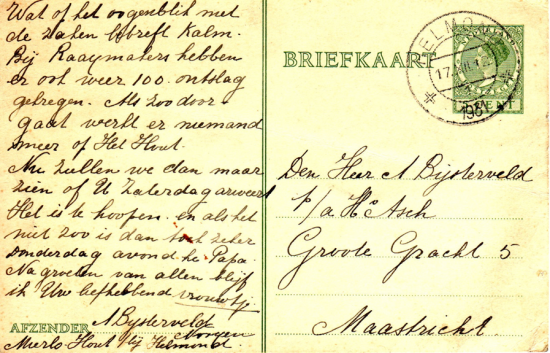 Wat of het oogenblik met
de zaken betreft Kalm.
Bij Raaymakers hebben
er ook weer 100. ontslag
gekregen. Als zoo door-
gaat werkt er niemand
meer of Het Hout.
Nu zullen we dan maar
zien of U Zaterdag arriveert
Het is te hoopen. en als het
niet zoo is dan toch zeker
donderdag avond hé Papa.
Na groeten van allen blijf
ik Uw liefhebbend vrouwtj
AFZENDER A Bijsterveld
Mierlo-Hout bij Helmond
BRIEFKAART
HELMOND
CENT
Den Heer A Bijsterveld
p/a Hs Asch
Groote Gracht 5
Maastricht.